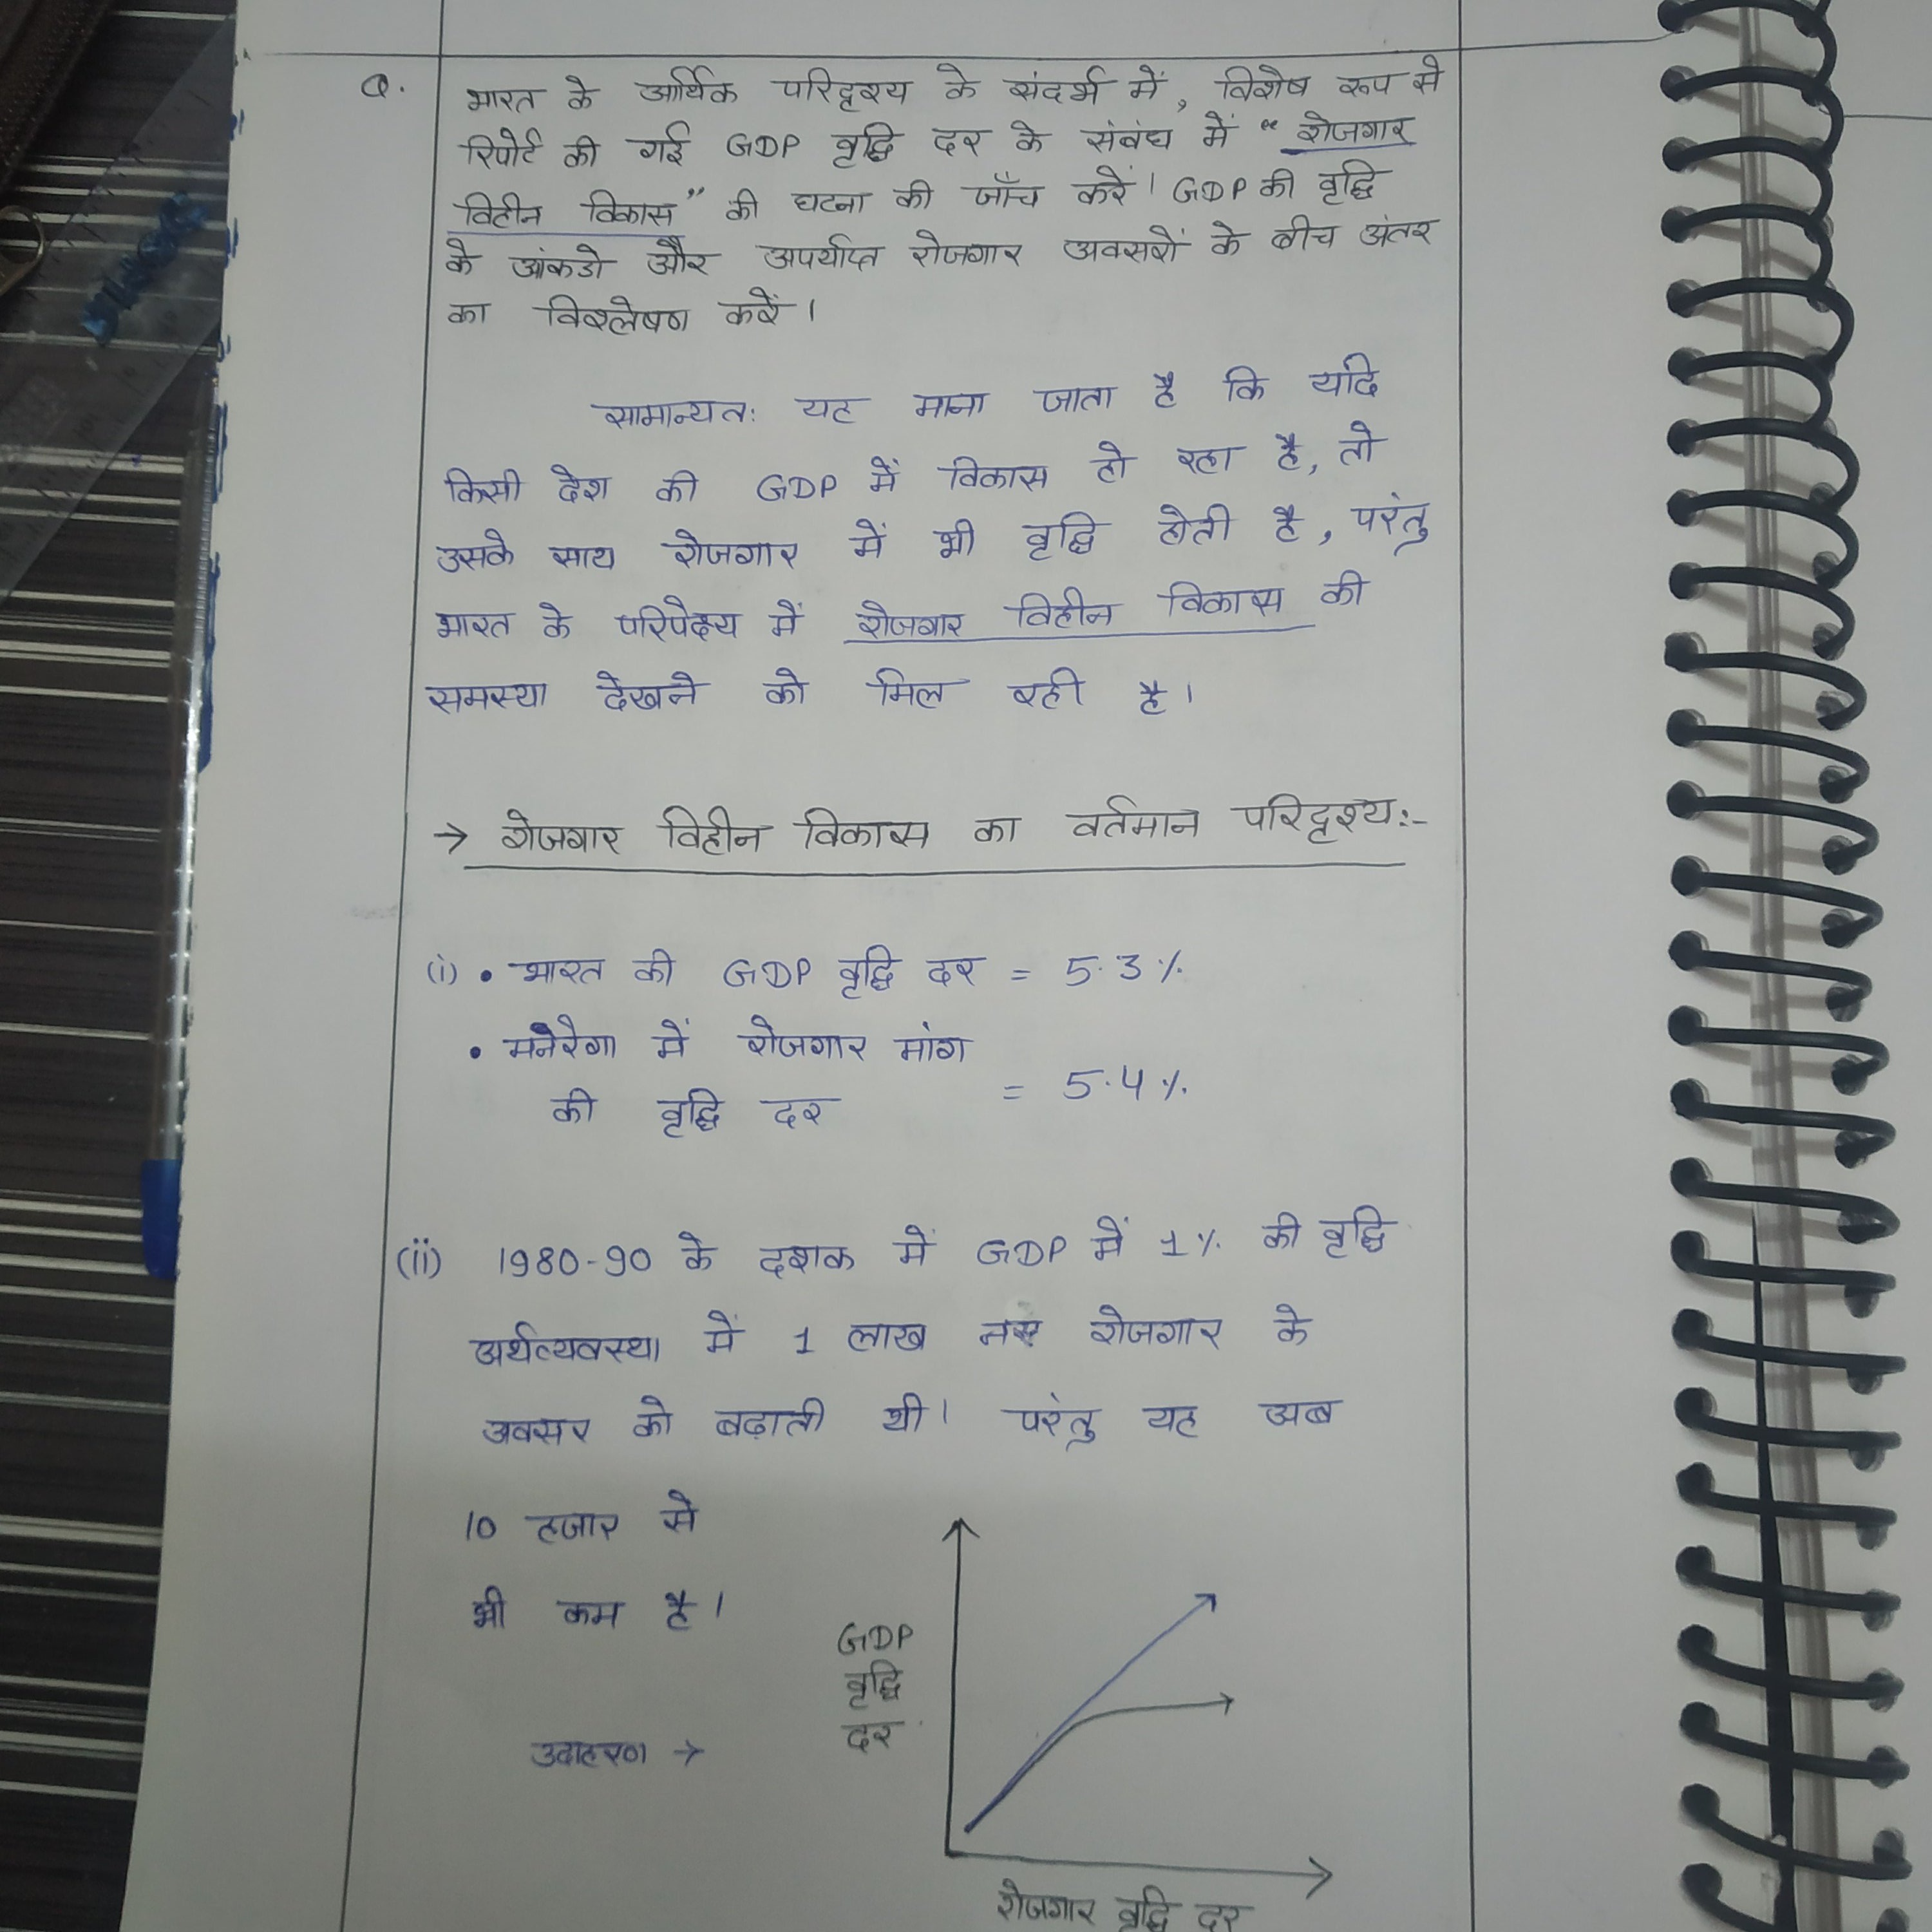 Q. भारत के आर्थिक परिदृश्य के संदर्भ में, विशेष रूप से
रिपोर्ट की गई GDP वृद्धि दर के संबंध में "रोजगार
विहीन विकास" की घटना की जाँच करें। GDP की वृद्धि
के आंकडो और अपर्याप्त रोजगार अवसरों के बीच अंतर
का विश्लेषण करें।
सामान्यतः यह माना जाता है कि यदि
किसी देश की GDP में विकास हो रहा है, तो
उसके साथ रोजगार में भी वृद्धि होती है, परंतु
भारत के परिपेक्ष्य में रोजगार विहीन विकास की
समस्या देखने को मिल रही है।
→ रोजगार विहीन विकास का वर्तमान परिदृश्य:-
(i) • भारत की GDP वृद्धि दर = 5.3%
• मनेरेगा में रोजगार मांग
की वृद्धि दर = 5.4%
(ii) 1980-90 के दशक में GDP में 1% की वृद्धि
अर्थव्यवस्था में 1 लाख नए रोजगार के
अवसर को बढ़ाती थी। परंतु यह अब
10 हजार से
भी कम है।
GDP
वृद्धि
दर
उदाहरण →
रोजगार वृद्धि दर